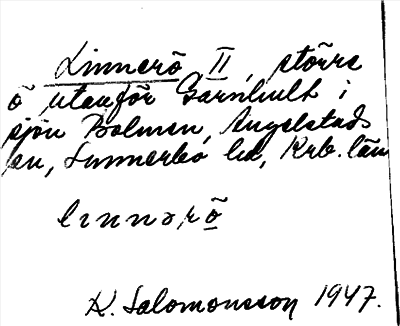 Linnerö II, större
ö utanför Garnhult i
sjön Bolmen, Angelstads
sn, Sunnerbo hd, Krb. län
K. Salomonsson 1947.